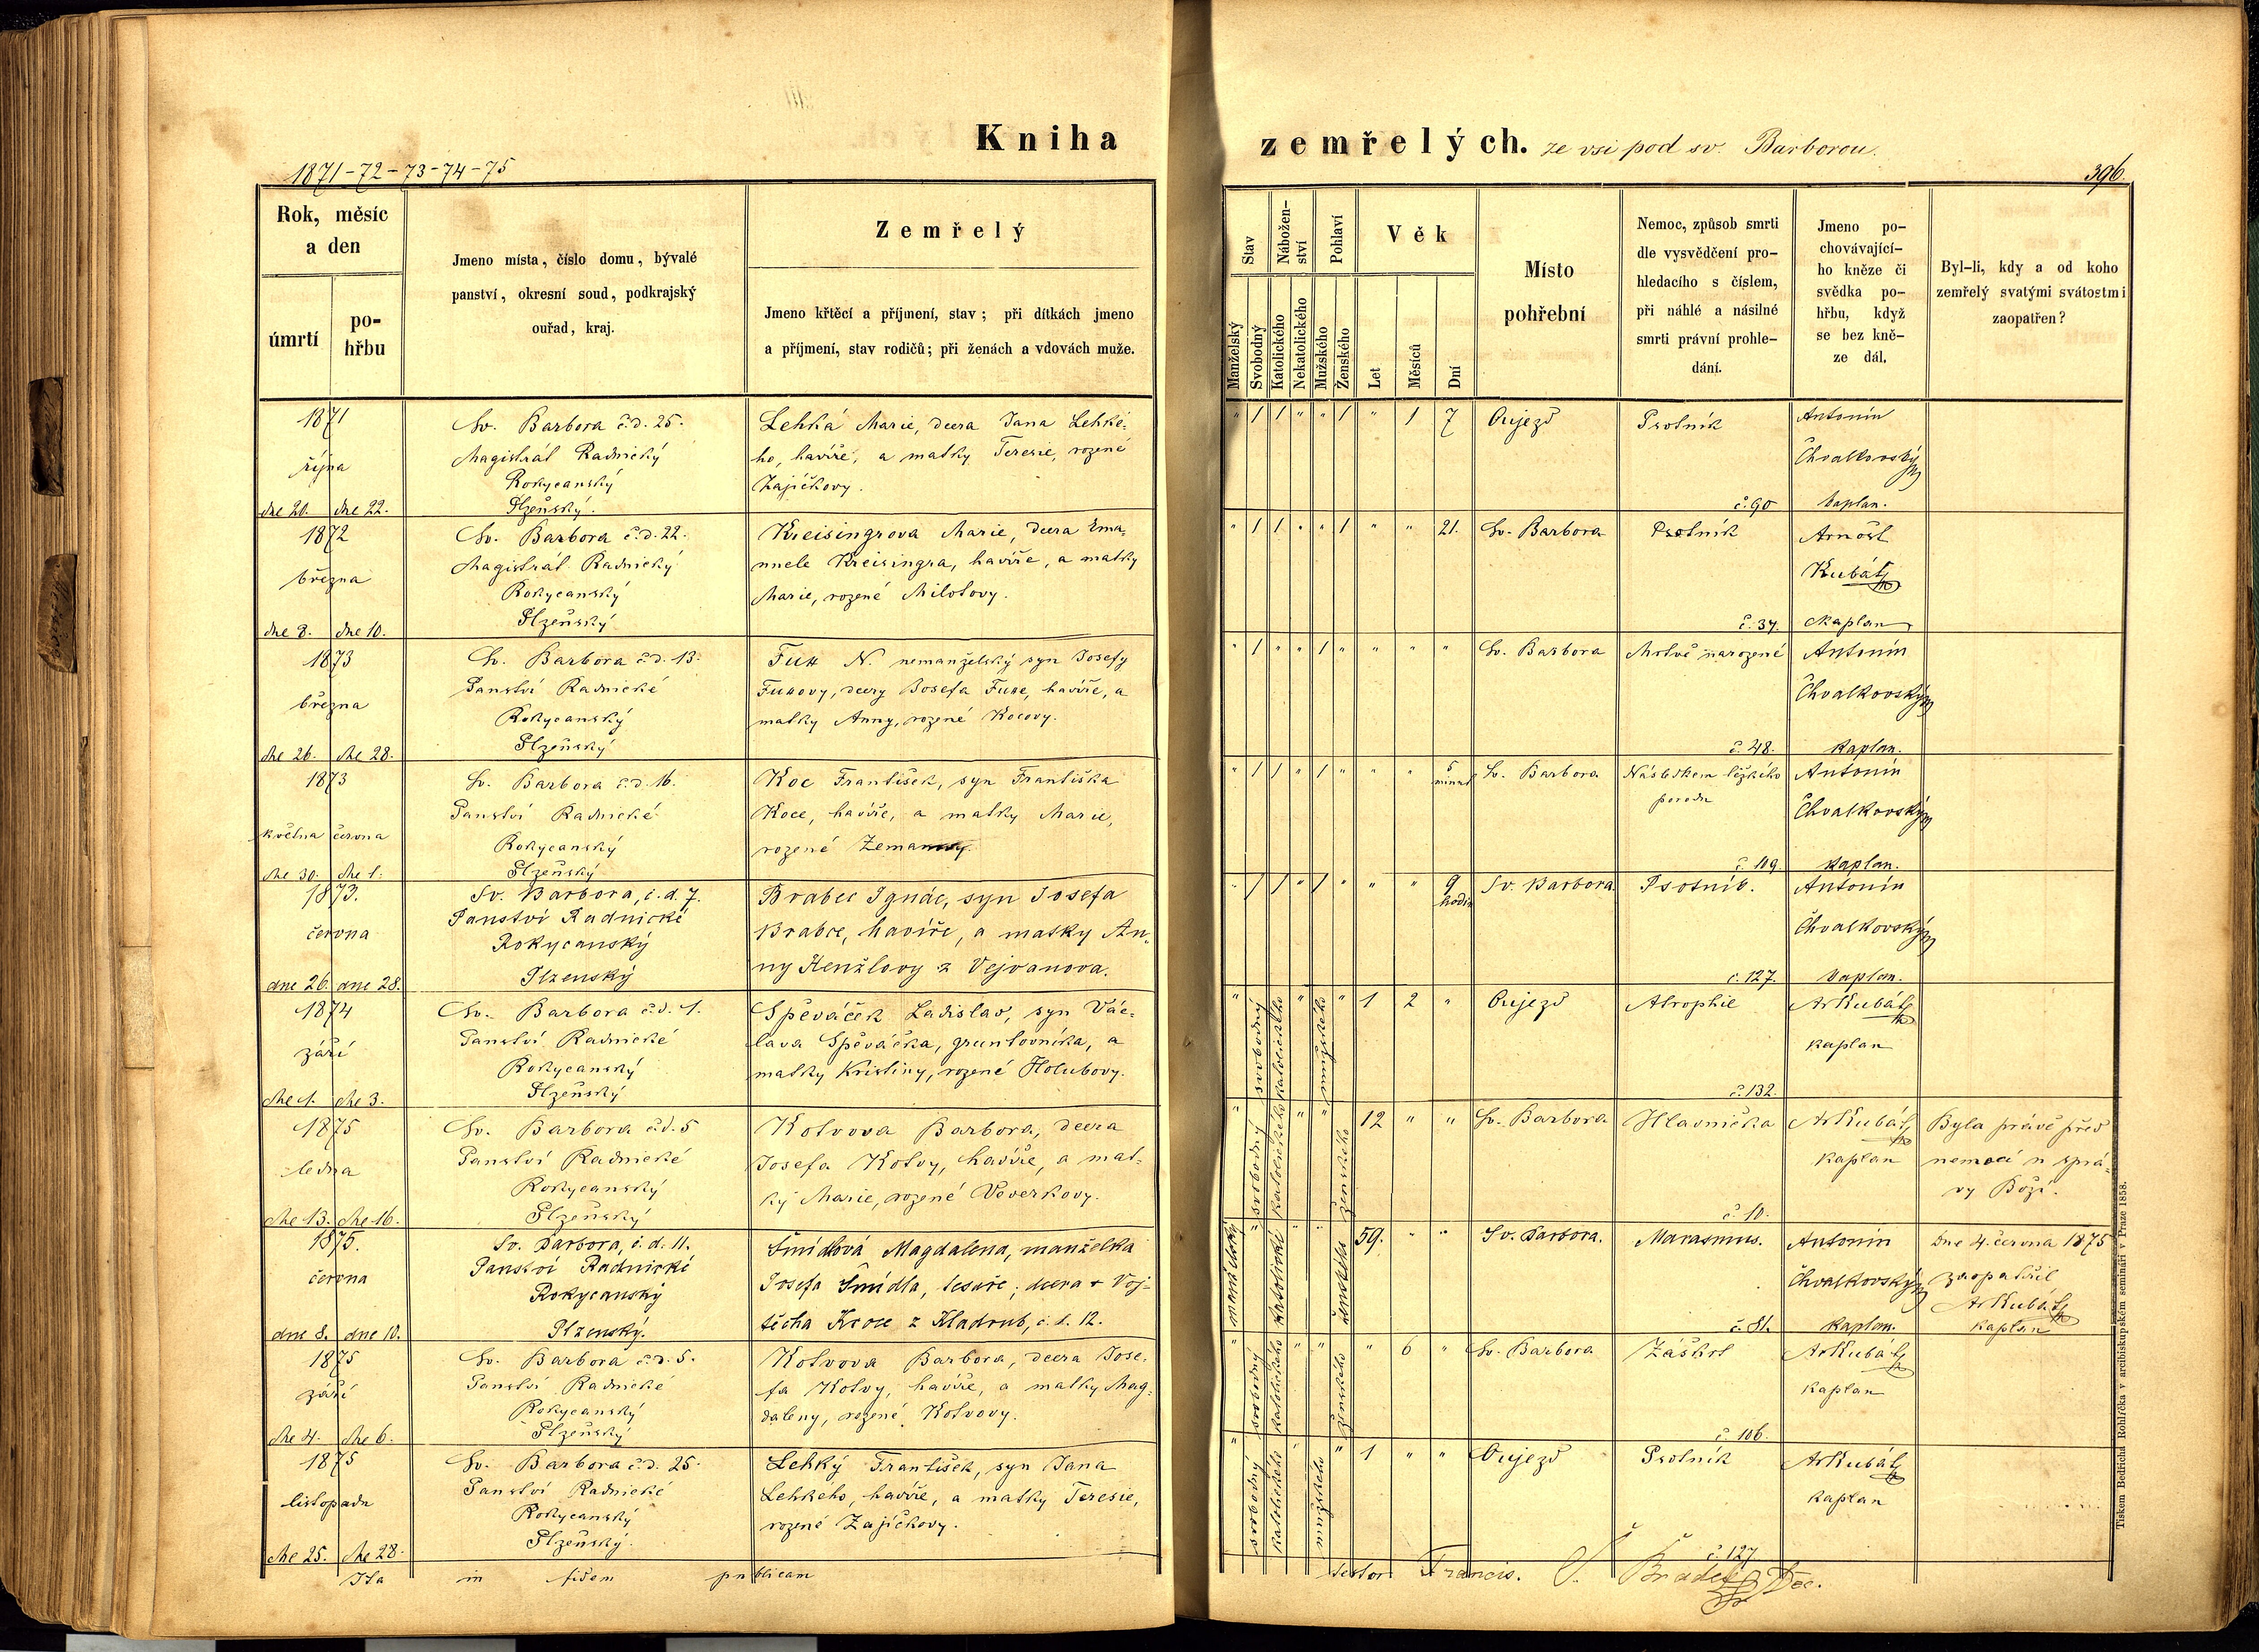 Kniha
zemřelých. ze vsi pod sv. Barborou.
1871-72-73-74-75
396.
Rok, měsíc
a den
úmrtí
po-
hřbu
Jmeno místa, číslo domu, bývalé
panství, okresní soud, podkrajský
ouřad, kraj.
Zemřelý
Jmeno křtěcí a příjmení, stav; při dítkách jmeno
a příjmení, stav rodičů; při ženách a vdovách muže.
Stav
Manželský
Svobodný
Nábožen-
ství
Katolického
Nekatolického
Pohlaví
Mužského
Ženského
Věk
Let
Měsíců
Dní
Místo
pohřební
Nemoc, způsob smrti
dle vysvědčení pro-
hledacího s číslem,
při náhlé a násilné
smrti právní prohle-
dání.
Jmeno po-
chovávající-
ho kněze či
svědka po-
hřbu, když
se bez kně-
ze dál.
Byl-li, kdy a od koho
zemřelý svatými svátostmi
zaopatřen?
1871
října
dne 20. dne 22.
Sv. Barbora č.d. 25.
Magistrát Radnický
Rokycanský
Plzeňský.
Lehká Marie, dcera Jana Lehké-
ho, havíře, a matky Teresie, rozené
Zajíčkovy.
" 1 1 " " 1 " 1 7
Oujezd
Psotník
č. 90
Antonín
Chvalkovský
kaplan.
1872
března
dne 8. dne 10.
Sv. Barbora č.d. 22.
Magistrát Radnický
Rokycanský
Plzeňský
Kreisingrova Marie, dcera Ema-
nuele Kreisingra, havíře, a matky
Marie, rozené Milotovy.
" 1 1 " " 1 " " 21.
Sv. Barbora
Psotník
č. 34.
Arnošt
Kubát
kaplan
1873
března
dne 26. dne 28.
Sv. Barbora č.d. 13.
Panství Radnické
Rokycanský
Plzeňský
Fux N. nemanželský syn Josefy
Fuxovy, dcery Josefa Fuxe, havíře, a
matky Anny, rozené Kocovy.
" 1 " " 1 " " " "
Sv. Barbora
Mrtvě narozené
č. 48.
Antonín
Chvalkovský
kaplan.
1873
května června
dne 30. dne 1.
Sv. Barbora č.d. 16.
Panství Radnické
Rokycanský
Plzeňský
Koc František, syn Františka
Koce, havíře, a matky Marie,
rozené Zemanovy.
" 1 1 " 1 " " " 5 minut
Sv. Barbora
Následkem těžkého
porodu
č. 109.
Antonín
Chvalkovský
kaplan.
1873.
června
dne 26. dne 28.
Sv. Barbora, č.d. 7.
Panství Radnické
Rokycanský
Plzenský
Brabec Ignác, syn Josefa
Brabce, havíře, a matky An-
ny Henžlovy z Vejvanova.
" 1 1 " 1 " " " 9 hodin
Sv. Barbora
Psotník.
č. 127.
Antonín
Chvalkovský
kaplan.
1874
září
dne 1. dne 3.
Sv. Barbora č.d. 1.
Panství Radnické
Rokycanský
Plzeňský
Spěváček Ladislav, syn Vác-
lava Spěváčka, gruntovníka, a
matky Kristiny, rozené Holubovy.
" svobodný katolického " mužského " 1 2 "
Oujezd
Atrophie
č. 132.
ArKubát
kaplan
1875
ledna
dne 13. dne 16.
Sv. Barbora č.d. 5
Panství Radnické
Rokycanský
Plzeňský
Kotvova Barbora, dcera
Josefa Kotvy, havíře, a mat-
ky Marie, rozené Veverkovy.
" svobodný katolického " " ženského 12 " "
Sv. Barbora
Hlavnička
č. 10.
ArKubát
kaplan
Byla právě před
nemocí u sprá-
vy Boží.
1875.
června
dne 8. dne 10.
Sv. Barbora, č.d. 11.
Panství Radnické
Rokycanský
Plzenský.
Šmídlová Magdalena, manželka
Josefa Šmídla, tesaře; dcera + Voj-
těcha Kroce z Kladrub, č.d. 12.
manželský " katolické " " ženského 59. " "
Sv. Barbora.
Marasmus.
č. 81.
Antonín
Chvalkovský
kaplan.
Dne 4. června 1875
zaopatřil
ArKubát
kaplan
1875
září
dne 4. dne 6.
Sv. Barbora č.d. 5.
Panství Radnické
Rokycanský
Plzeňský
Kotvova Barbora, dcera Jose-
fa Kotvy, havíře, a matky Mag-
daleny, rozené Kotvovy.
" svobodný katolického " " ženského " 6 "
Sv. Barbora
Záškrt
č. 106.
ArKubát
kaplan
1875
listopadu
dne 25. dne 28.
Sv. Barbora č.d. 25.
Panství Radnické
Rokycanský
Plzeňský.
Lehký František, syn Jana
Lehkeho, havíře, a matky Teresie,
rozené Zajíčkovy.
" svobodný katolického " mužského " 1 " "
Oujezd
Psotník
č. 127
ArKubát
kaplan
Ita in fidem publicam testor Francis. Š. Bradeč Dec.
Tiskem Bedřicha Rohlíčka v arcibiskupském semináři v Praze 1858.